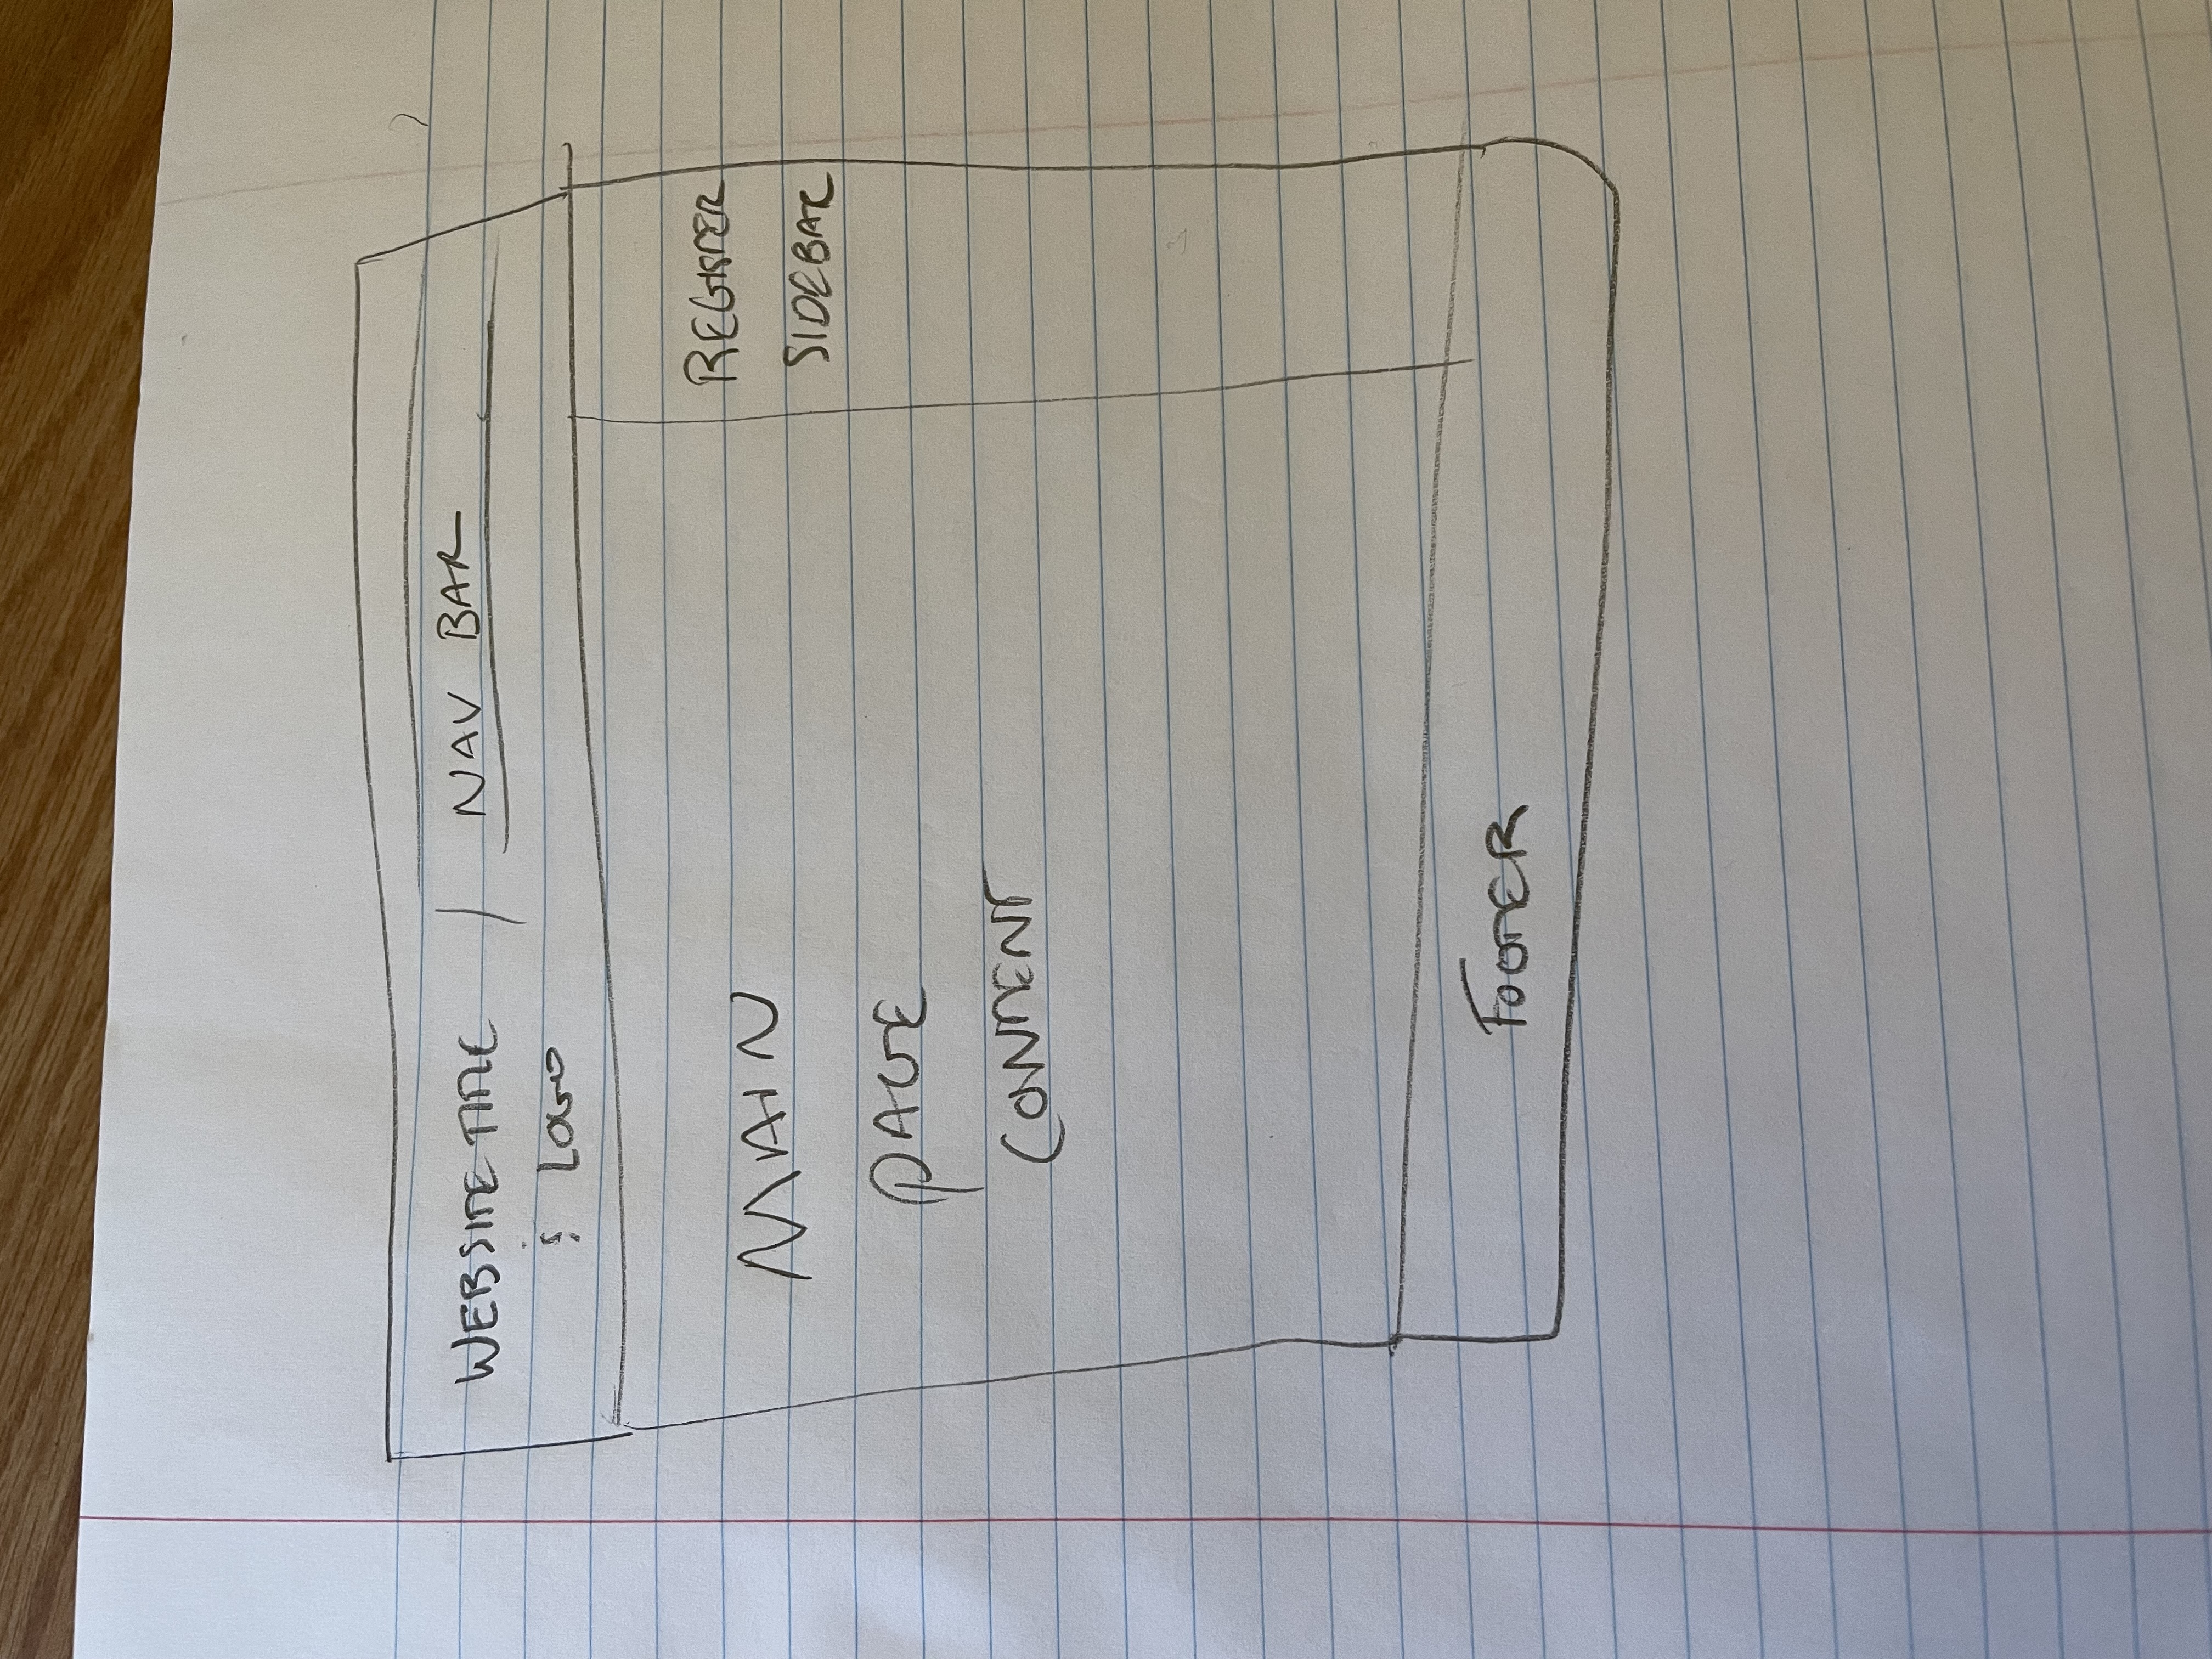 WEBSITE TITLE / NAV BAR
& LOGO
MAIN
PAGE
CONTENT
REGISTER
SIDEBAR
FOOTER